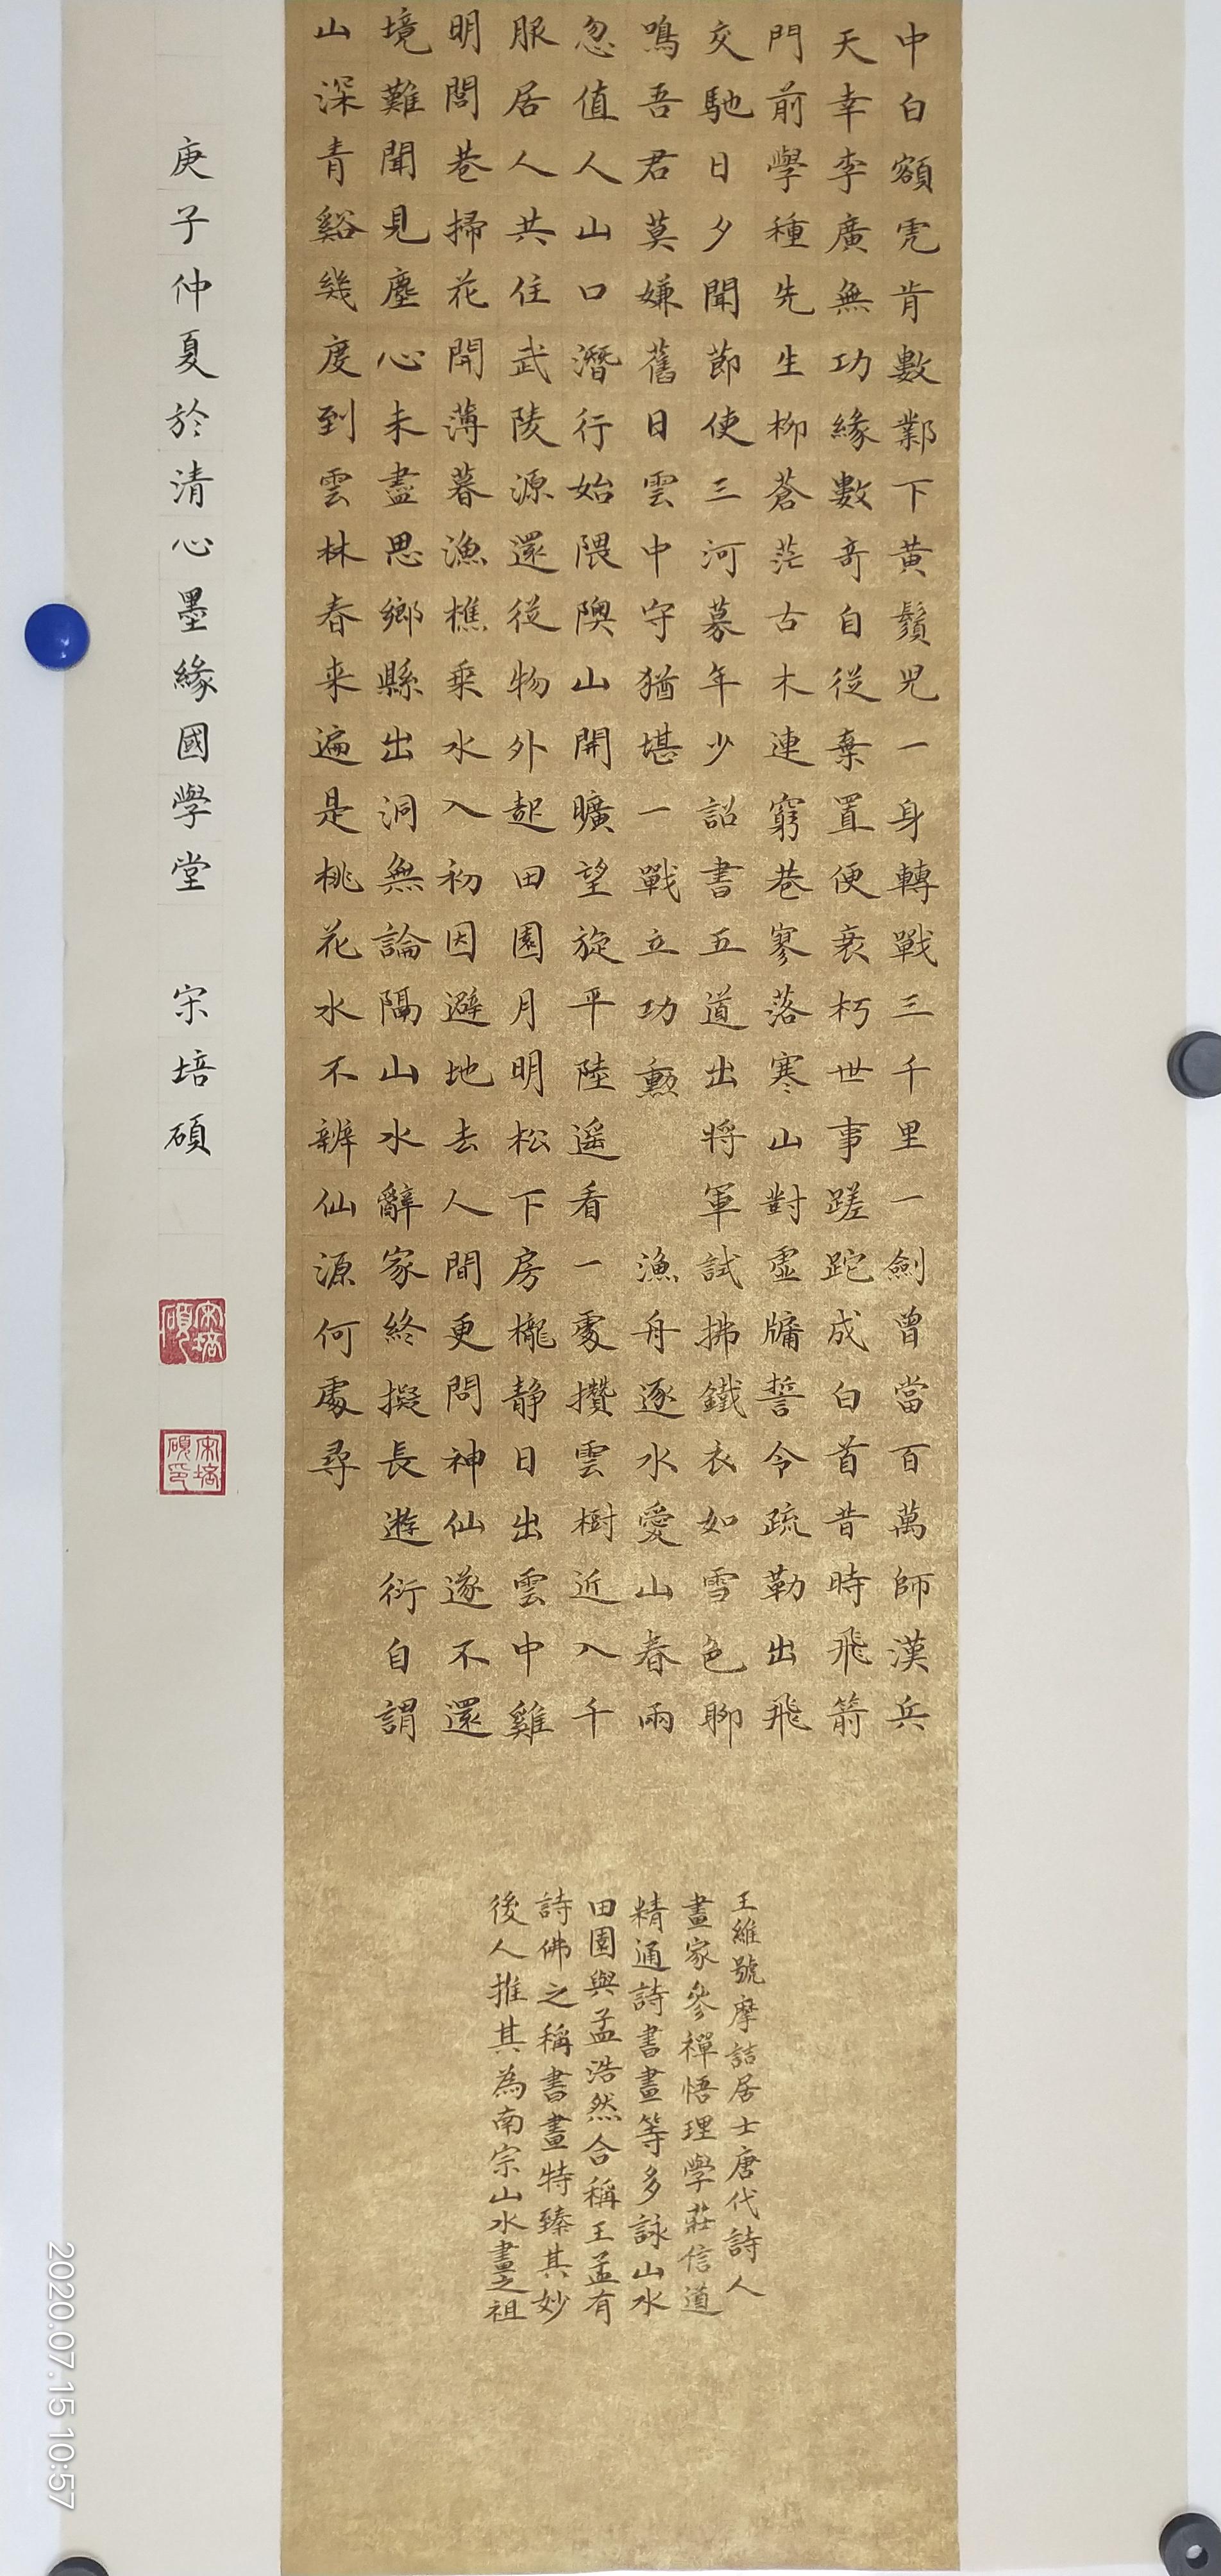 中白額虎肯數鄴下黃鬚兒一身轉戰三千里一劍曾當百萬師漢兵
天幸李廣無功緣數奇自從棄置便衰朽世事蹉跎成白首昔時飛箭
門前學種先生柳蒼茫古木連窮巷寥落寒山對虛牖誓令疏勒出飛
交馳日夕聞節使三河募年少詔書五道出將軍試拂鐵衣如雪色聊
鳴吾君莫嫌舊日雲中守猶堪一戰立功勳 漁舟逐水愛山春兩
忽值人山口潛行始隈隩山開曠望旋平陸遥看一處攢雲樹近入千
服居人共住武陵源還從物外起田園月明松下房櫳静日出雲中雞
明閭巷掃花開薄暮漁樵乗水入初因避地去人間更問神仙遂不還
境難聞見塵心未盡思鄉縣出洞無論隔山水辭家終擬長遊衍自謂
山深青谿幾度到雲林春来遍是桃花水不辨仙源何處尋
王維號摩詰居士唐代詩人
畫家參禪悟理學莊信道
精通詩書畫等多詠山水
田園與孟浩然合稱王孟有
詩佛之稱書畫特臻其妙
後人推其為南宗山水畫之祖
庚子仲夏於清心墨緣國學堂 宋培碩
宋培碩
宋培碩印
2020.07.15 10:57